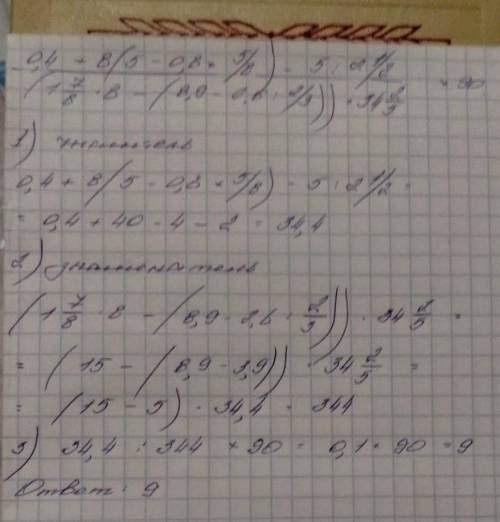 0,4 + 8(5 - 0,8 × 5/8) - 5 : 2 1/2
(1 7/8 · 8 - (8,9 - 2,6 : 2/3)) · 34 2/5 × 90
1) числитель
0,4 + 8(5 - 0,8 × 5/8) - 5 : 2 1/2 =
= 0,4 + 40 - 4 - 2 = 34,4
2) знаменатель
(1 7/8 · 8 - (8,9 - 2,6 : 2/3)) · 34 2/5 =
= (15 - (8,9 - 3,9)) · 34 2/5 =
= (15 - 5) · 34,4 = 344
3) 34,4 : 344 × 90 = 0,1 × 90 = 9
Ответ: 9